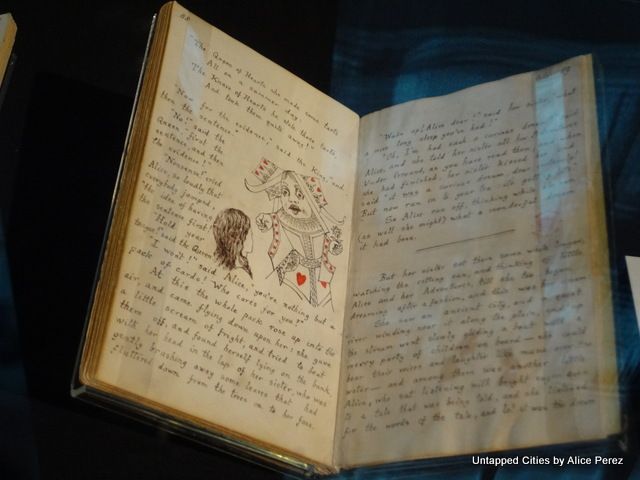 88.
"The Queen of Hearts she made some tarts
All on a summer day:
The Knave of Hearts he stole those tarts,
And took them quite away!"
"Now for the evidence," said the King, "and
then the sentence."
"No!" said the
Queen, "first the
sentence, and then
the evidence!"
"Nonsense!" cried
Alice, so loudly that
everybody jumped,
"the idea of having
the sentence first!"
"Hold your
tongue!" said the Queen.
"I won't!" said Alice, "you're nothing but a
pack of cards! Who cares for you?"
At this the whole pack rose up into the
air, and came flying down upon her: she gave
a little scream of fright, and tried to beat
them off, and found herself lying on the bank,
with her head in the lap of her sister, who was
gently brushing away some leaves that had
fluttered down from the trees on to her face.
"Wake up! Alice dear!" said her sister, "what
a nice long sleep you've had!"
"Oh, I've had such a curious dream!" said
Alice, and she told her sister all her Adventures
Under Ground, as you have read them, and when
she had finished, her sister kissed her and
said "it was a curious dream, dear, certainly!
But now run in to your tea: it's getting late."
So Alice ran off, thinking while she
(as well she might) what a wonderful
it had been.
But her sister sat there some while longer,
watching the setting sun, and thinking of little
Alice and her Adventures, till she too began
dreaming after a fashion, and this was her dream:
She saw an ancient city, and a quiet
river winding near it along the plain, and up
the stream went slowly gliding a boat with a
merry party of children on board — she could
hear their voices and laughter like music over the
water — and among them was another little
Alice, who sat listening with bright eager eyes
to a tale that was being told, and she listened
for the words of the tale, and lo! it was the dream
Untapped Cities by Alice Perez